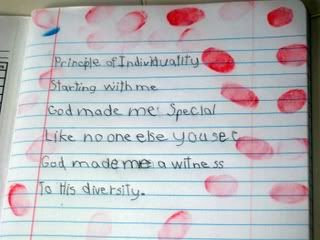 Principle of Individuality
Starting with me
God made me: Special
Like no one else you see
God made me a witness
To His diversity.